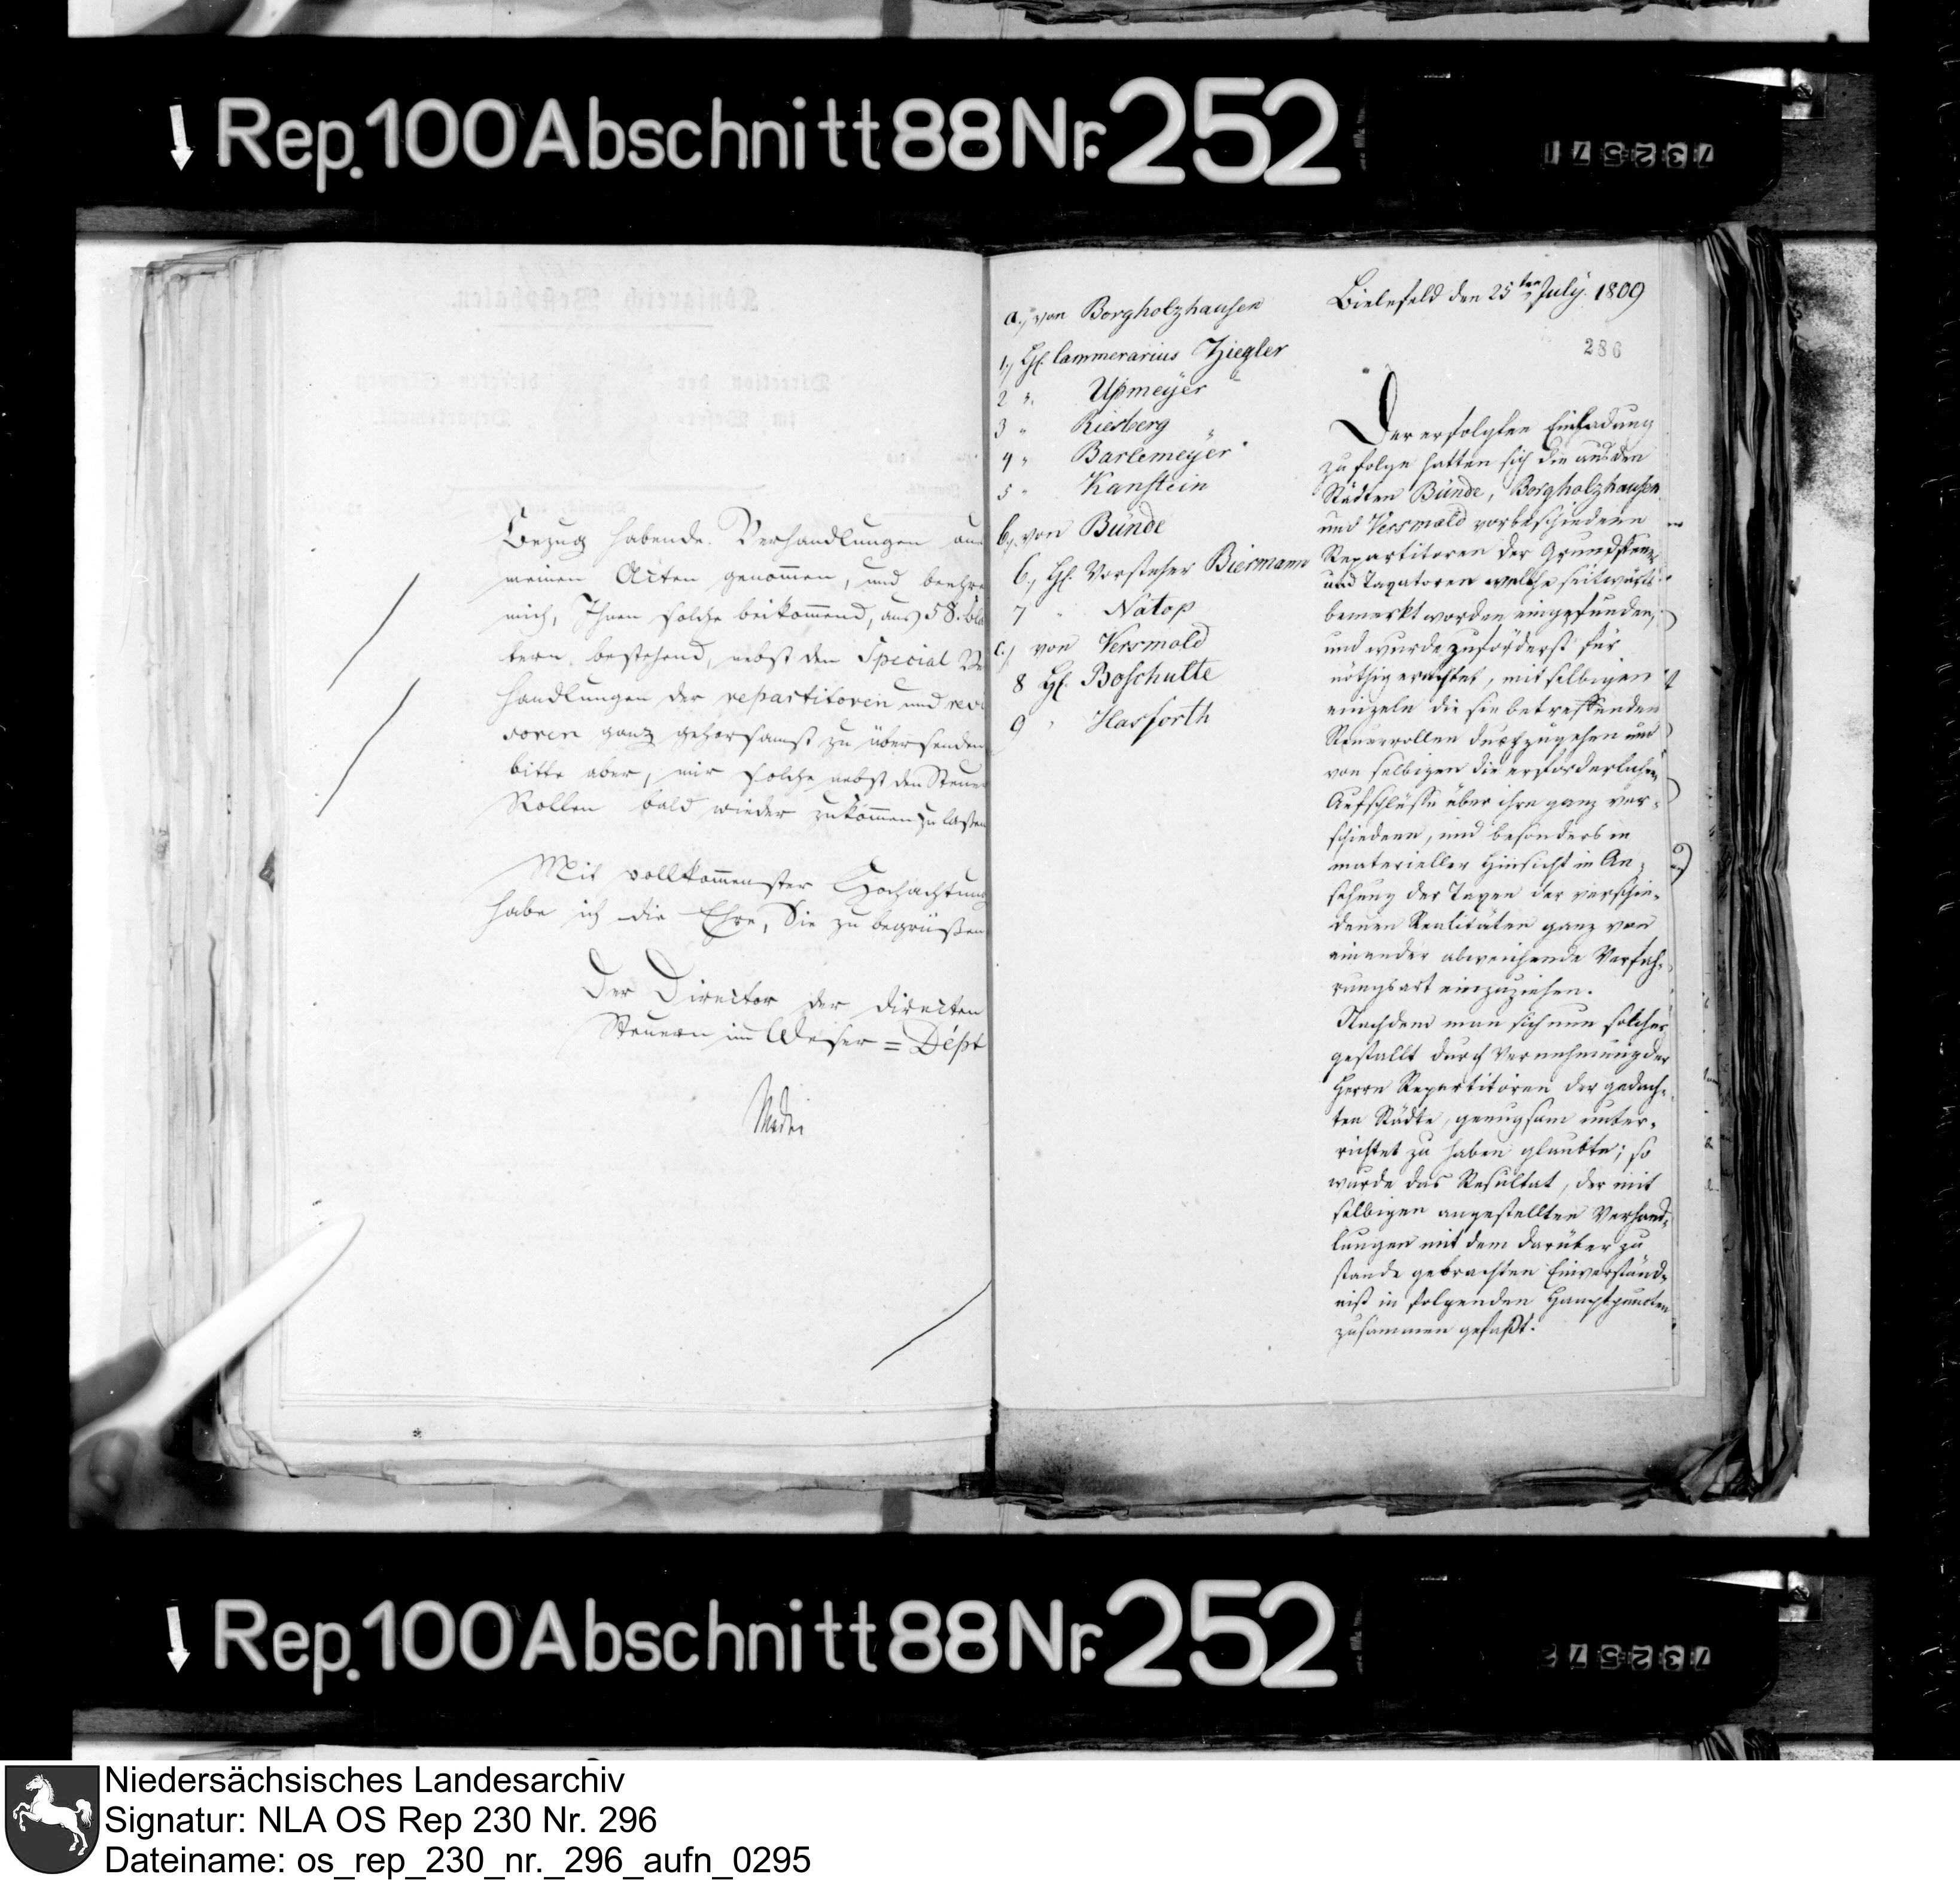 Rep. 100 Abschnitt 88 Nr. 252
Bezug habende Verhandlungen aus
meinen Acten genom̅en, und beehre
mich, Ihnen solche beikom̅end, aus 58. Blä
tern bestehend, nebst den Special Ve
handlungen der repartitoren und revi
soren ganz gehorsamst zu übersenden
bitte aber, mir solche nebst den Steuer
Rollen bald wieder zukom̅en zu laßen
Mit vollkom̅enster Hochachtung
habe ich die Ehre, Sie zu begrüßen
Der Director der directen
Steuern im Weser = Dépt
a., von Borgholzhausen
1., H. Cammerarius Ziegler
2 " Upmeyer
3 " Riesberg
4 " Barlemeyer
5 " Kanstein
b., von Bünde
6., H. Vorsteher Biermann
7 " Natop
c., von Versmold
8 H. Boschulte
9 " Hasforth
Bielefeld den 25ten July. 1809
286
Der erfolgten Einladung
zu folge hatten sich die aus den
Städten Bünde, Borgholzhausen
und Versmold vorbeschiedene
Repartitoren der Grundsteuer
und Taxatoren welche seitwärts
bemerkt worden eingefunden,
und wurde zuförderst für
nöthig erachtet, mit selbigen
einzeln die sie betreffenden
Steuerrollen durchzugehen und
von selbigen die erforderlichen
Aufschlüsse über ihre ganz ver-
schiedene, und besonders in
materieller Hinsicht in An-
sehung der Taxen der verschie-
denen Realitäten ganz von
einander abweichende Verfah-
rungsart einzuziehen.
Nachdem man sich nun solcher
gestallt durch Vernehmung der
Herrn Repartitoren der gedach-
ten Städte, genugsam unter-
richtet zu haben glaubte; so
wurde das Resultat, der mit
selbigen angestellten Verhand-
lungen mit dem darüber zu
stande gebrachten Einverständ-
niß in folgenden Hauptpuncten
zusammen gefaßt:
Rep. 100 Abschnitt 88 Nr. 252
Niedersächsisches Landesarchiv
Signatur: NLA OS Rep 230 Nr. 296
Dateiname: os_rep_230_nr._296_aufn_0295